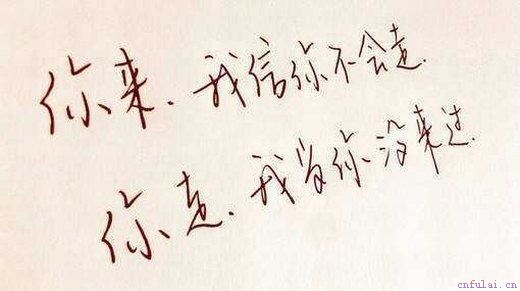 你来.我信你不会走.
你走.我当你没来过.
cnfulai.cn